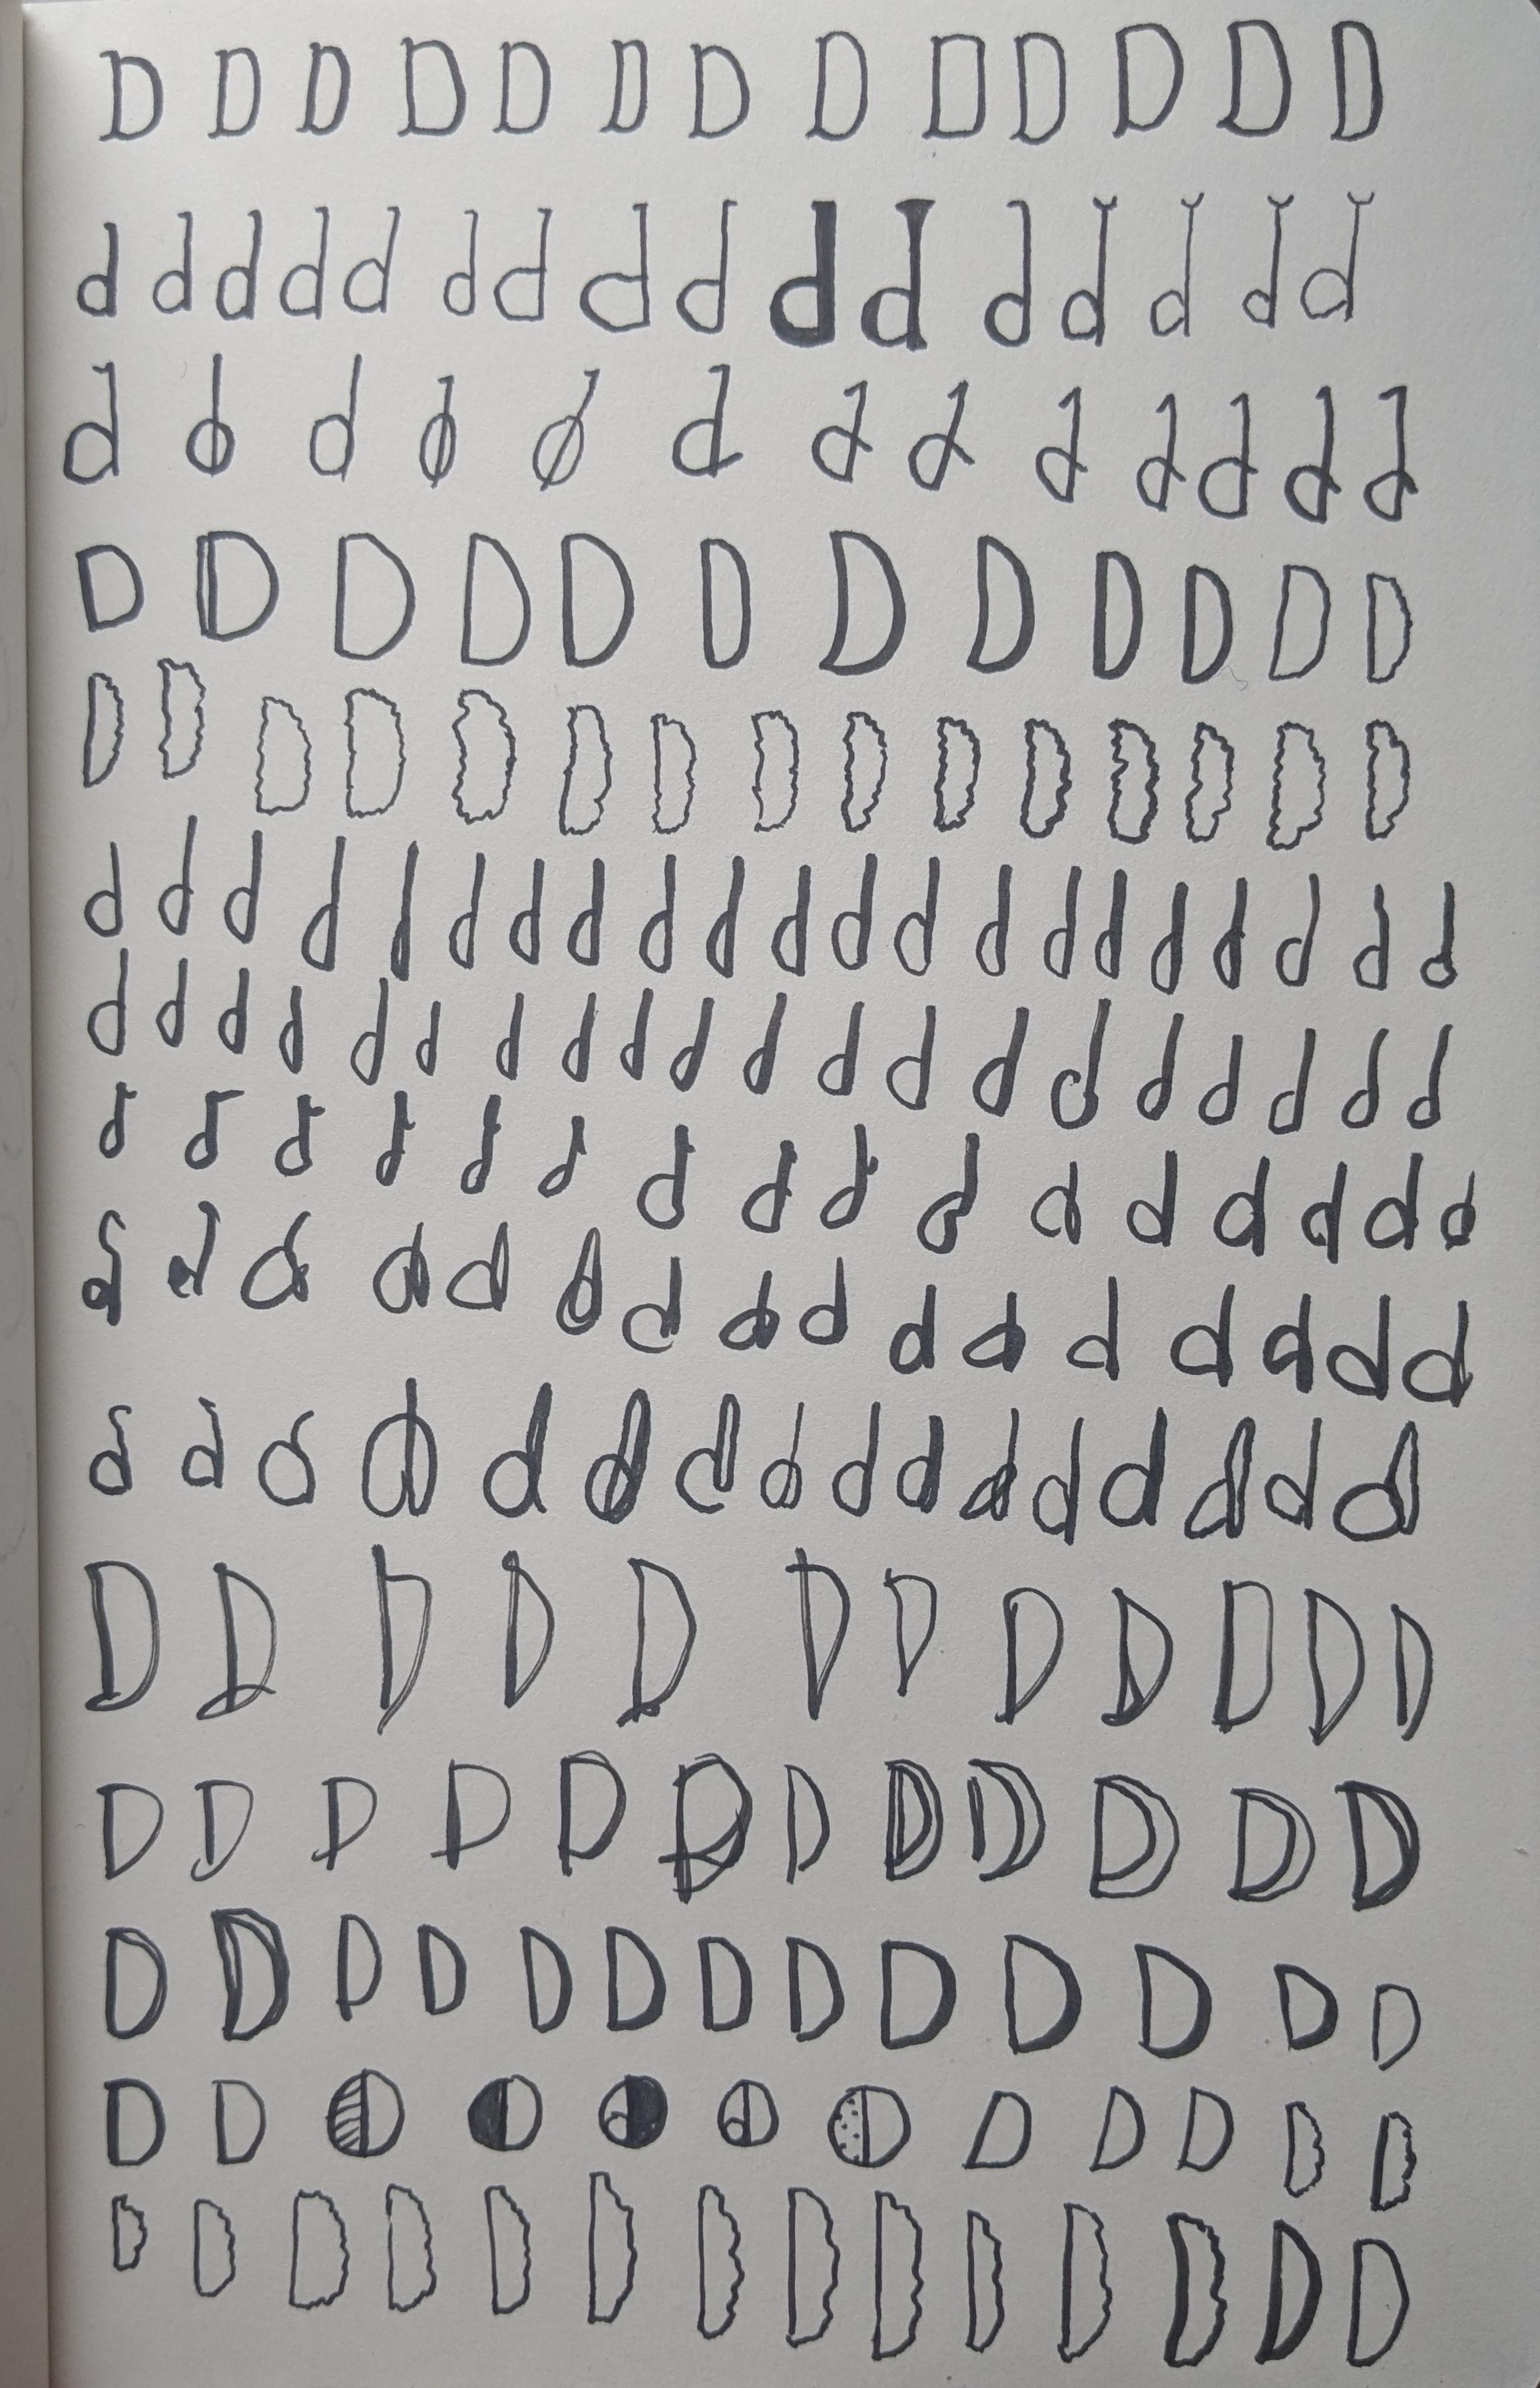 D D D D D D D D D D D D D
d d d d d d d d d d d d d d d d
d d d d d d d d d d d d d
D D D D D D D D D D D D
D D D D D D D D D D D D D D D
d d d d d d d d d d d d d d d d d d d d d
d d d d d d d d d d d d d d d d d d d d
d d d d d d d d d d d d d d d d
d d d d d d d d d d d d d d d d
d d d d d d d d d d d d d d d d
D D D D D D D D D D D D
D D D D D D D D D D D D
D D D D D D D D D D D D D
D D D D d d D D D D D D
D D D D D D D D D D D D D D